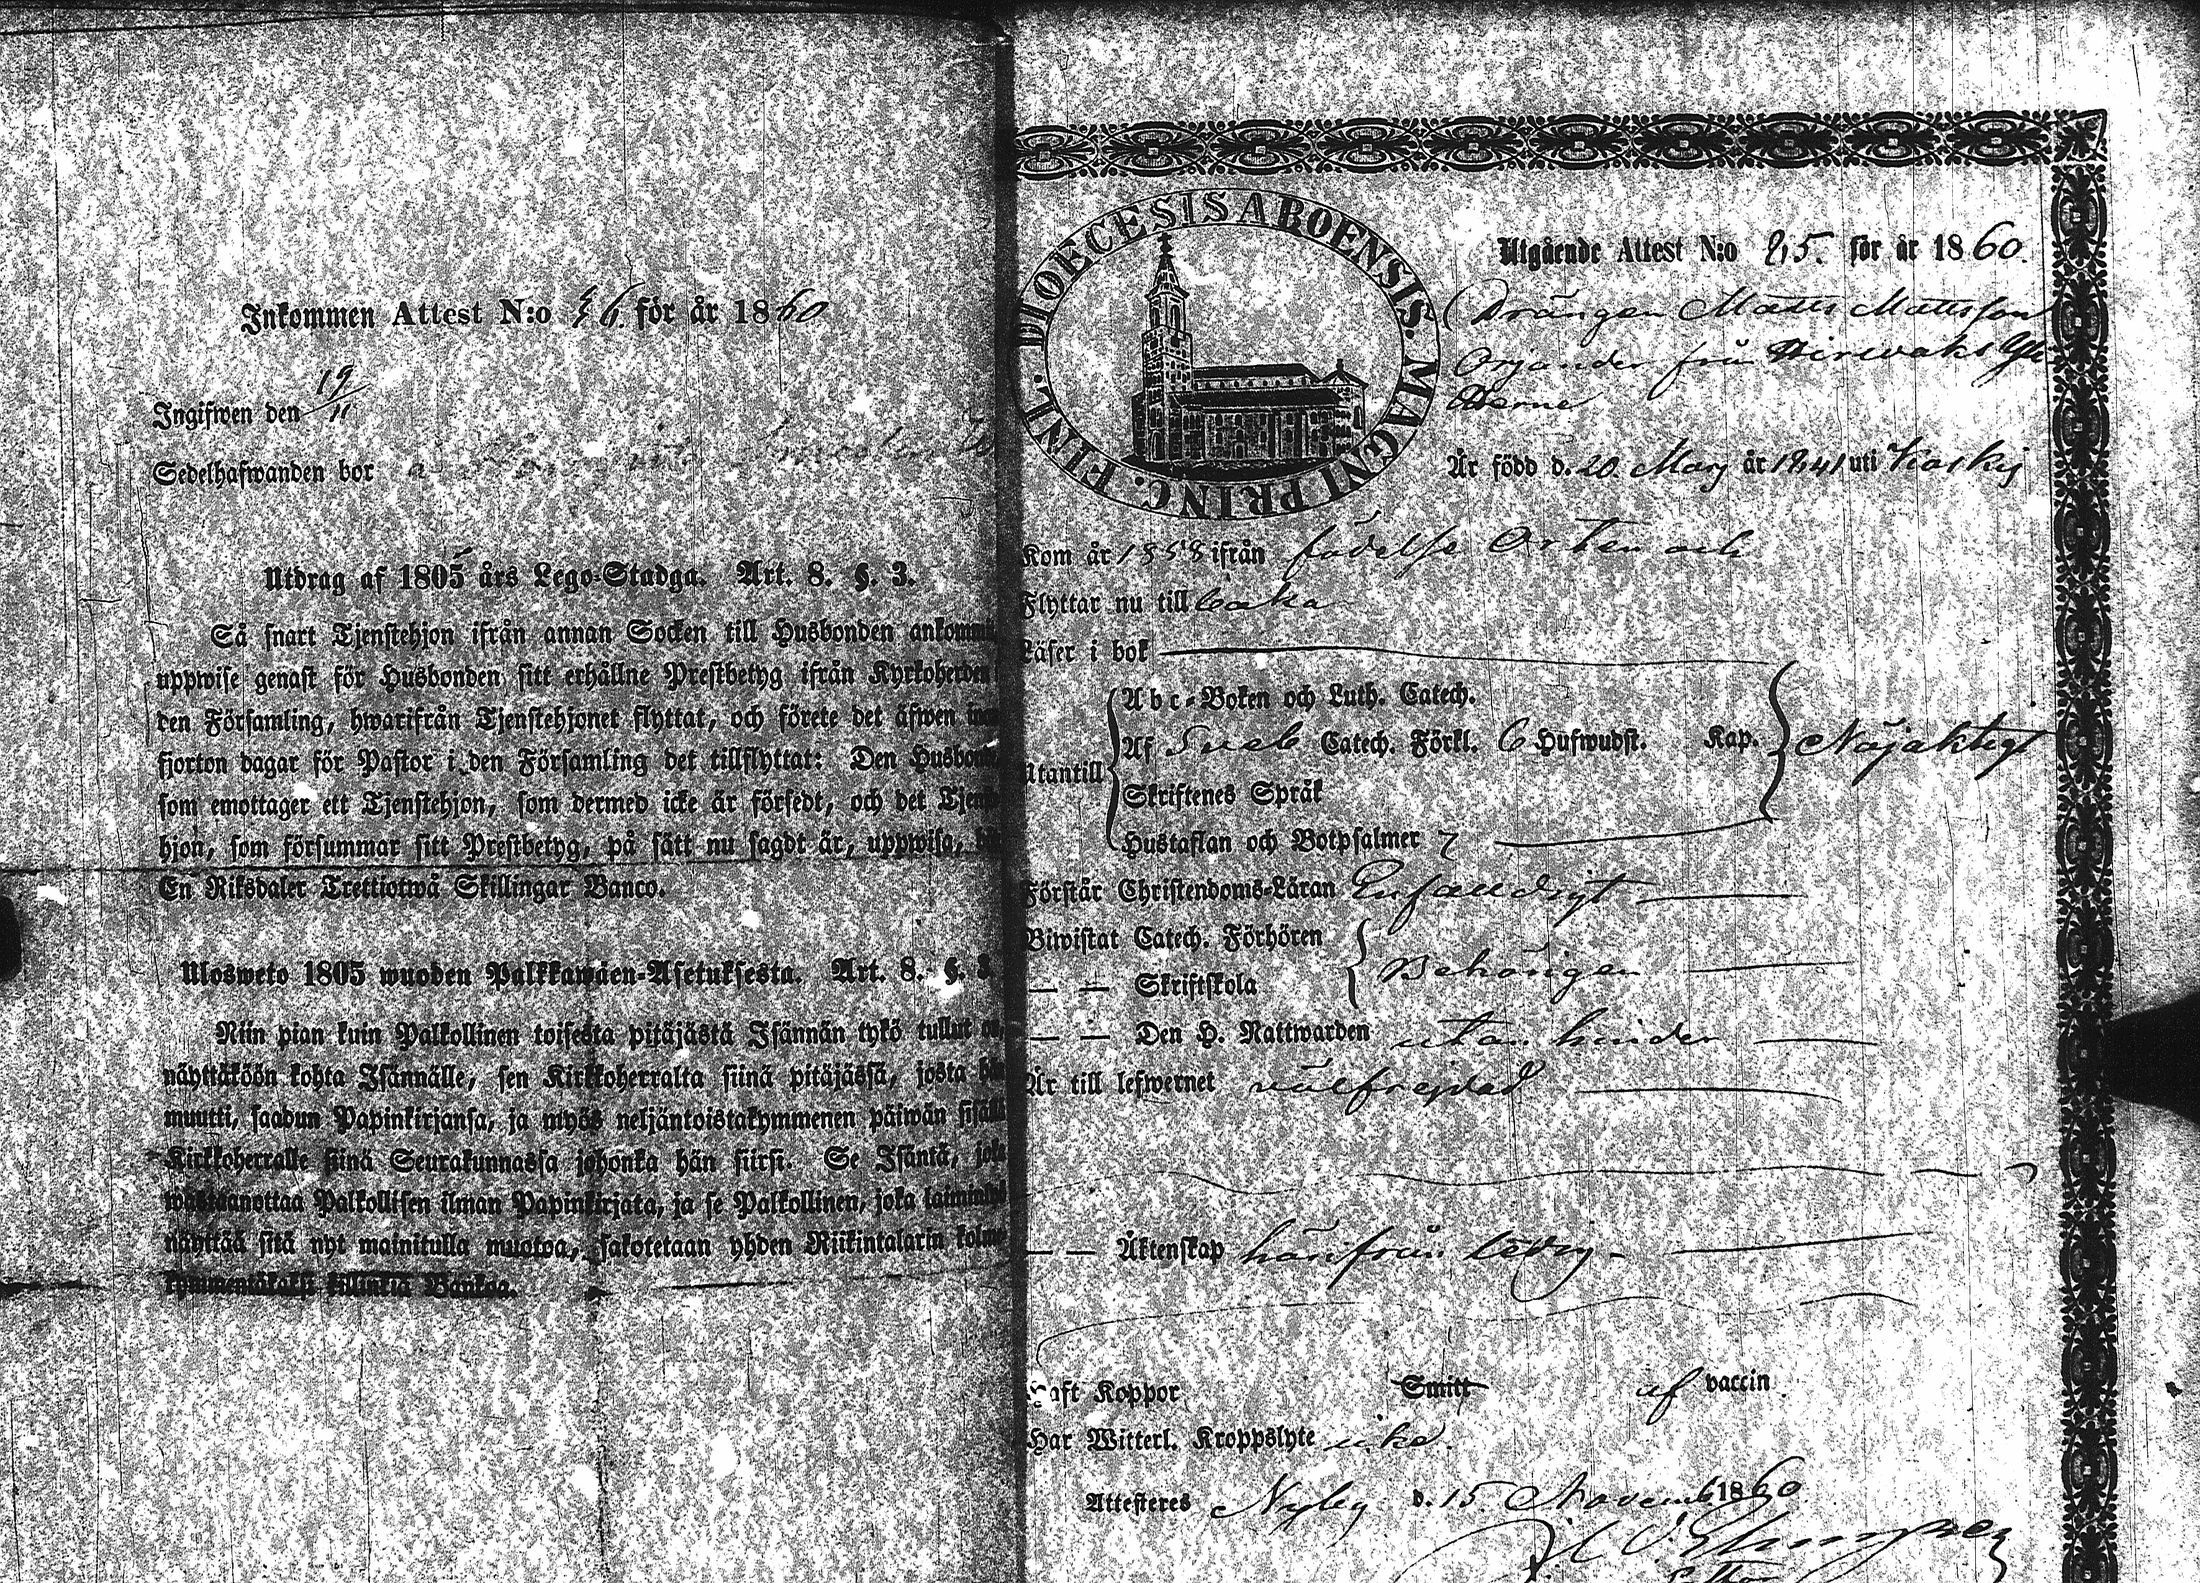 Inkommen Attest N:o 36. för år 1860
Ingifwen den 19/11
Sedelhafwanden bor
Utdrag af 1805 års Lego-Stadga. Art. 8. §. 3.
Så snart Tjenstehjon ifrån annan Socken till Husbonden ankommit
uppwise genast för Husbonden sitt erhållne Prestbetyg ifrån Kyrkoherden
den Församling, hwarifrån Tjenstehjonet flyttat, och förete det äfwen
fjorton dagar för Pastor i den Församling det tillflyttat: Den Husbonde
som emottager ett Tjenstehjon, som dermed icke är försedt, och det Tjenste
hjon, som försummar sitt Prestbetyg, på sätt nu sagdt är, uppwisa,
En Riksdaler Trettiotwå Skillingar Banco.
Ulosweto 1805 wuoden Palkkawäen-Asetuksesta. Art. 8. §. 3
Niin pian kuin Palkollinen toisesta pitäjästä Isännän tykö tullut on
näyttäköön kohta Isännälle, sen Kirkkoherralta siinä pitäjässä, josta hän
muutti, saadun Papinkirjansa, ja myös neljäntoistakymmenen päiwän sisällä
Kirkkoherralle siinä Seurakunnassa johonka hän siirsi. Se Isäntä, joka
wastaanottaa Palkollisen ilman Papinkirjata, ja se Palkollinen, joka laiminlyö
näyttää sitä nyt mainitulla muotoa, sakotetaan yhden Riikintalarin kolme
kymmentäkaksi killinkiä Bankoa.
DIOECESIS ABOENSIS. MAGNI PRINC. FINL.
Utgående Attest N:o 85. för år 1860.
Drängen Matts Mattsson
Orjander från
Är född d. 20 Marj år 1841 uti Koskis
Kom år 1858 ifrån födelse Orten och
Flyttar nu till
Läser i bok
Abc-Boken och Luth. Catech.
Af Sveb Catech. Förkl. 6 Hufwudst. Kap. Nöjaktigt
Utantill
Skriftenes Språk
Hustaflan och Botpsalmer 7
Förstår Christendoms-Läran Enfaldigt
Biwistat Catech. Förhören
— — Skriftskola Behörigen
— — Den H. Nattwarden utan hinder
Är till lefwernet välfrejdad
— — Äktenskap härifrån ledig
Haft Koppor Smitt af vaccin
Har Witterl. Kroppslyte icke.
Attesteres Nyby d. 15 Novemb. 1860